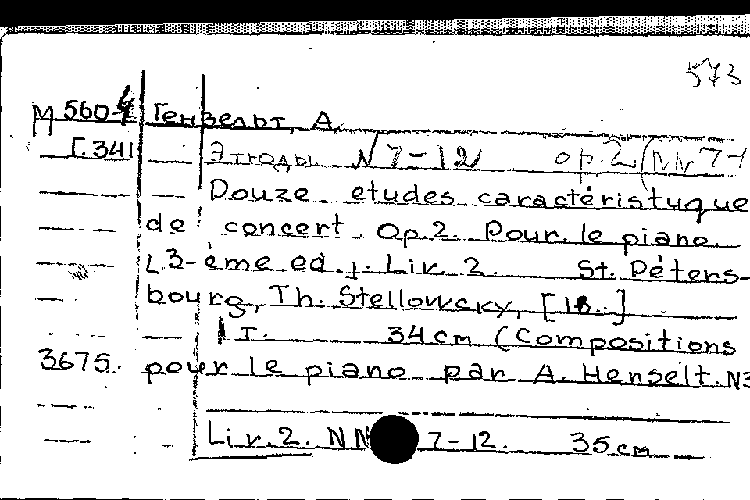 573
М 560-4 Гензельт, А.
Г.341 Этюды N 7-12 op. 2 (NN 7-1
Douze etudes caractéristuque
de concert. Op. 2. Pour le piano.
L 3-ème ed.]. Liv. 2. St. Péters-
bourg, Th. Stellowsky, [18..]
I T. 34 cm (Compositions
3675. pour le piano par A. Henselt. N3
Liv. 2. NN 7-12. 35 cm